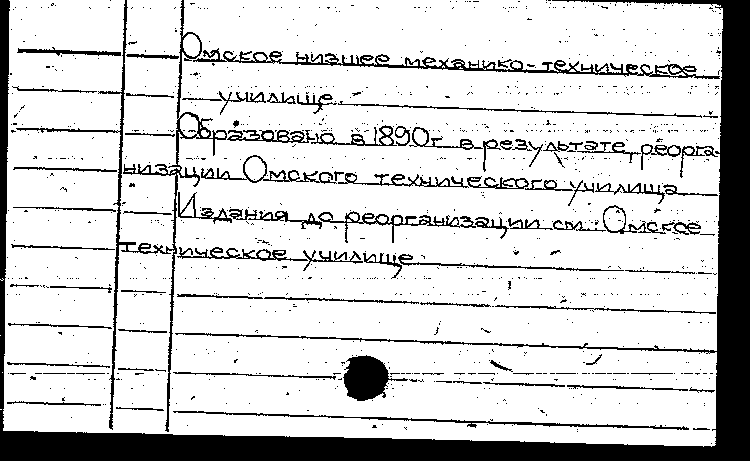 Омское низшее механико-техническое
училище.
Образовано в 1890г в результате реорга-
низации Омского технического училища
Издания до реорганизации см.: Омское
техническое училище.